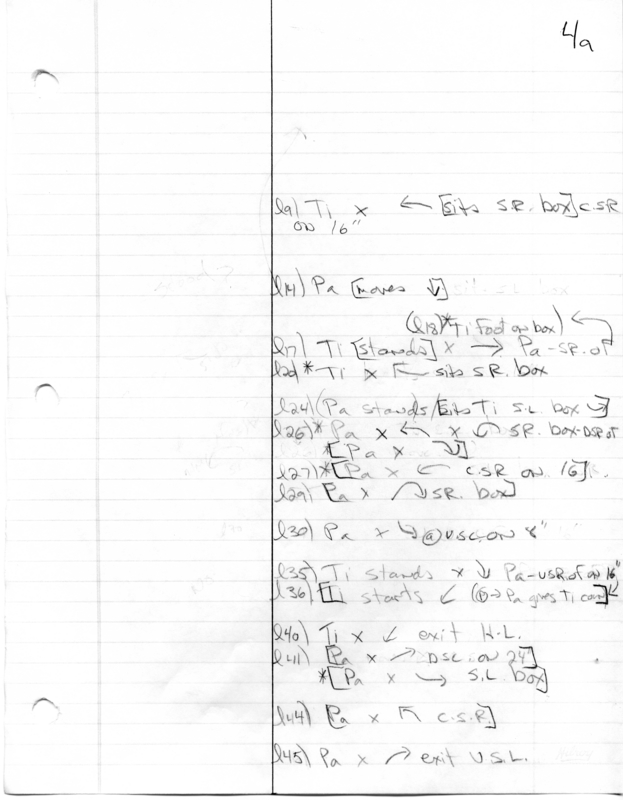 4a
l9) Ti x ← [sits S.R. box] C.SR
on 16"
l14) Pa [moves ↓]
(l18)* Ti Foot on box) ←
l17) Ti [stands] x → Pa-SR.of
l20) * Ti x ↖ sits SR. box
l24) (Pa stands/Sits Ti S.L. box ↘
l26) * Pa x ← x ↶ SR. box-DSR of
*[Pa x ↘]
l27) *[Pa x ← C.SR on 16]
l29) [Pa x ↷ SR. box]
l30) Pa x ↳ @ USC on 8"
l35) Ti stands x ↓ Pa-USR.of on 16"
l36) [Ti starts ↙ (→ Pa gives Ti coin] ↙
l40) Ti x ↙ exit H.L.
l41) [Pa x ↗ DSL on 24"]
*[Pa x → S.L. box]
l44) [Pa x ↖ C.S.R]
l45) Pa x ↗ exit U.S.L.